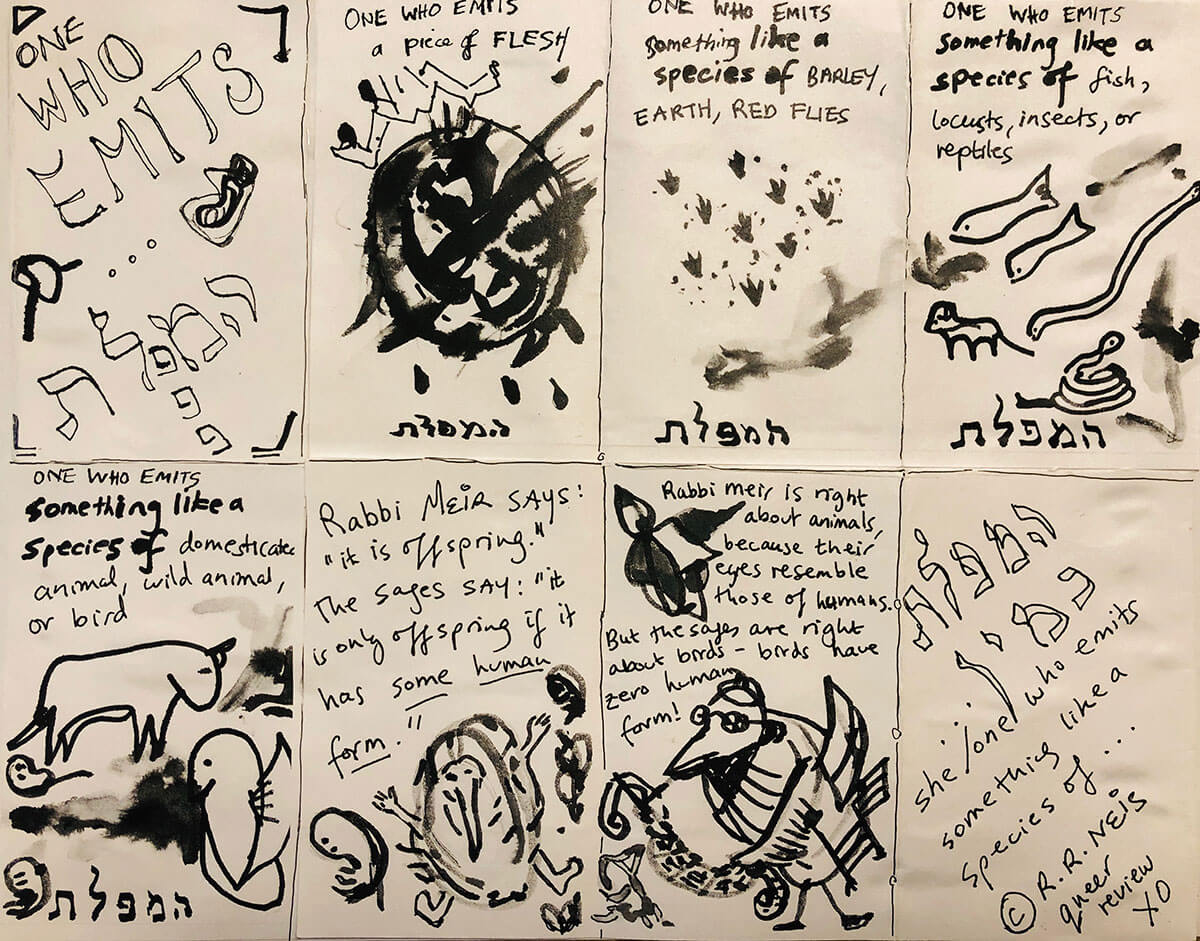 ONE
WHO
EMITS
...
המפל
פ
פ
ת
ONE WHO EMITS
a piece of FLESH
המפלת
ONE WHO EMITS
something like a
species of BARLEY,
EARTH, RED FLIES
המפלת
ONE WHO EMITS
something like a
species of fish,
locusts, insects, or
reptiles
המפלת
ONE WHO EMITS
something like a
species of domesticated
animal, wild animal,
or bird
המפלת
Rabbi MEIR SAYS:
"it is offspring."
The sages SAY: "it
is only offspring if it
has some human
form."
Rabbi meir is right
about animals,
because their
eyes resemble
those of humans.
But the sages are right
about birds - birds have
zero human
form!
המפלת
כמין
she/one who emits
something like a
species of ...
© R.R. NEIS
queer
review
XO